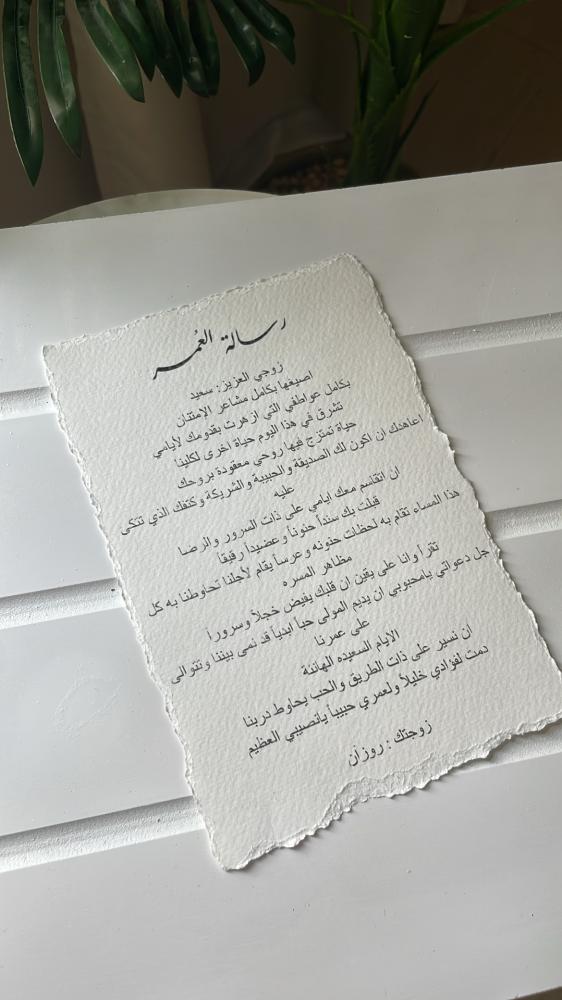 رسالة العُمر
زوجي العزيز: سعيد
اصيغها بكامل مشاعر الإمتنان
بكامل عواطفي التي ازهرت بقدومك لأيامي
تشرق في هذا اليوم حياة اخرى لكلينا
حياة تمتزج فيها روحي معقودة بروحك
اعاهدك ان اكون لك الصديقة والحبيبة والشريكة وكتفك الذي تتكى
عليه
ان اتقاسم معك ايامي على ذات السرور والرضا
قبلت بك سنداً حنوناً وعضيداً رقيقاً
هذا المساء تقام به لحظات حنونه وعرساً يقام لأجلنا تحاوطنا به كل
مظاهر المسره
تقرأ وانا على يقين ان قلبك يفيض خجلاً وسروراً
جل دعواتي يامحبوبي ان يديم المولى حباً ابدياً قد نمى بيننا وتتوالى
على عمرنا
الأيام السعيده الهانئة
ان نسير على ذات الطريق والحب يحاوط دربنا
دمت لفؤادي خليلاً ولعمري حبيباً يانصيبي العظيم
زوجتك : روزان